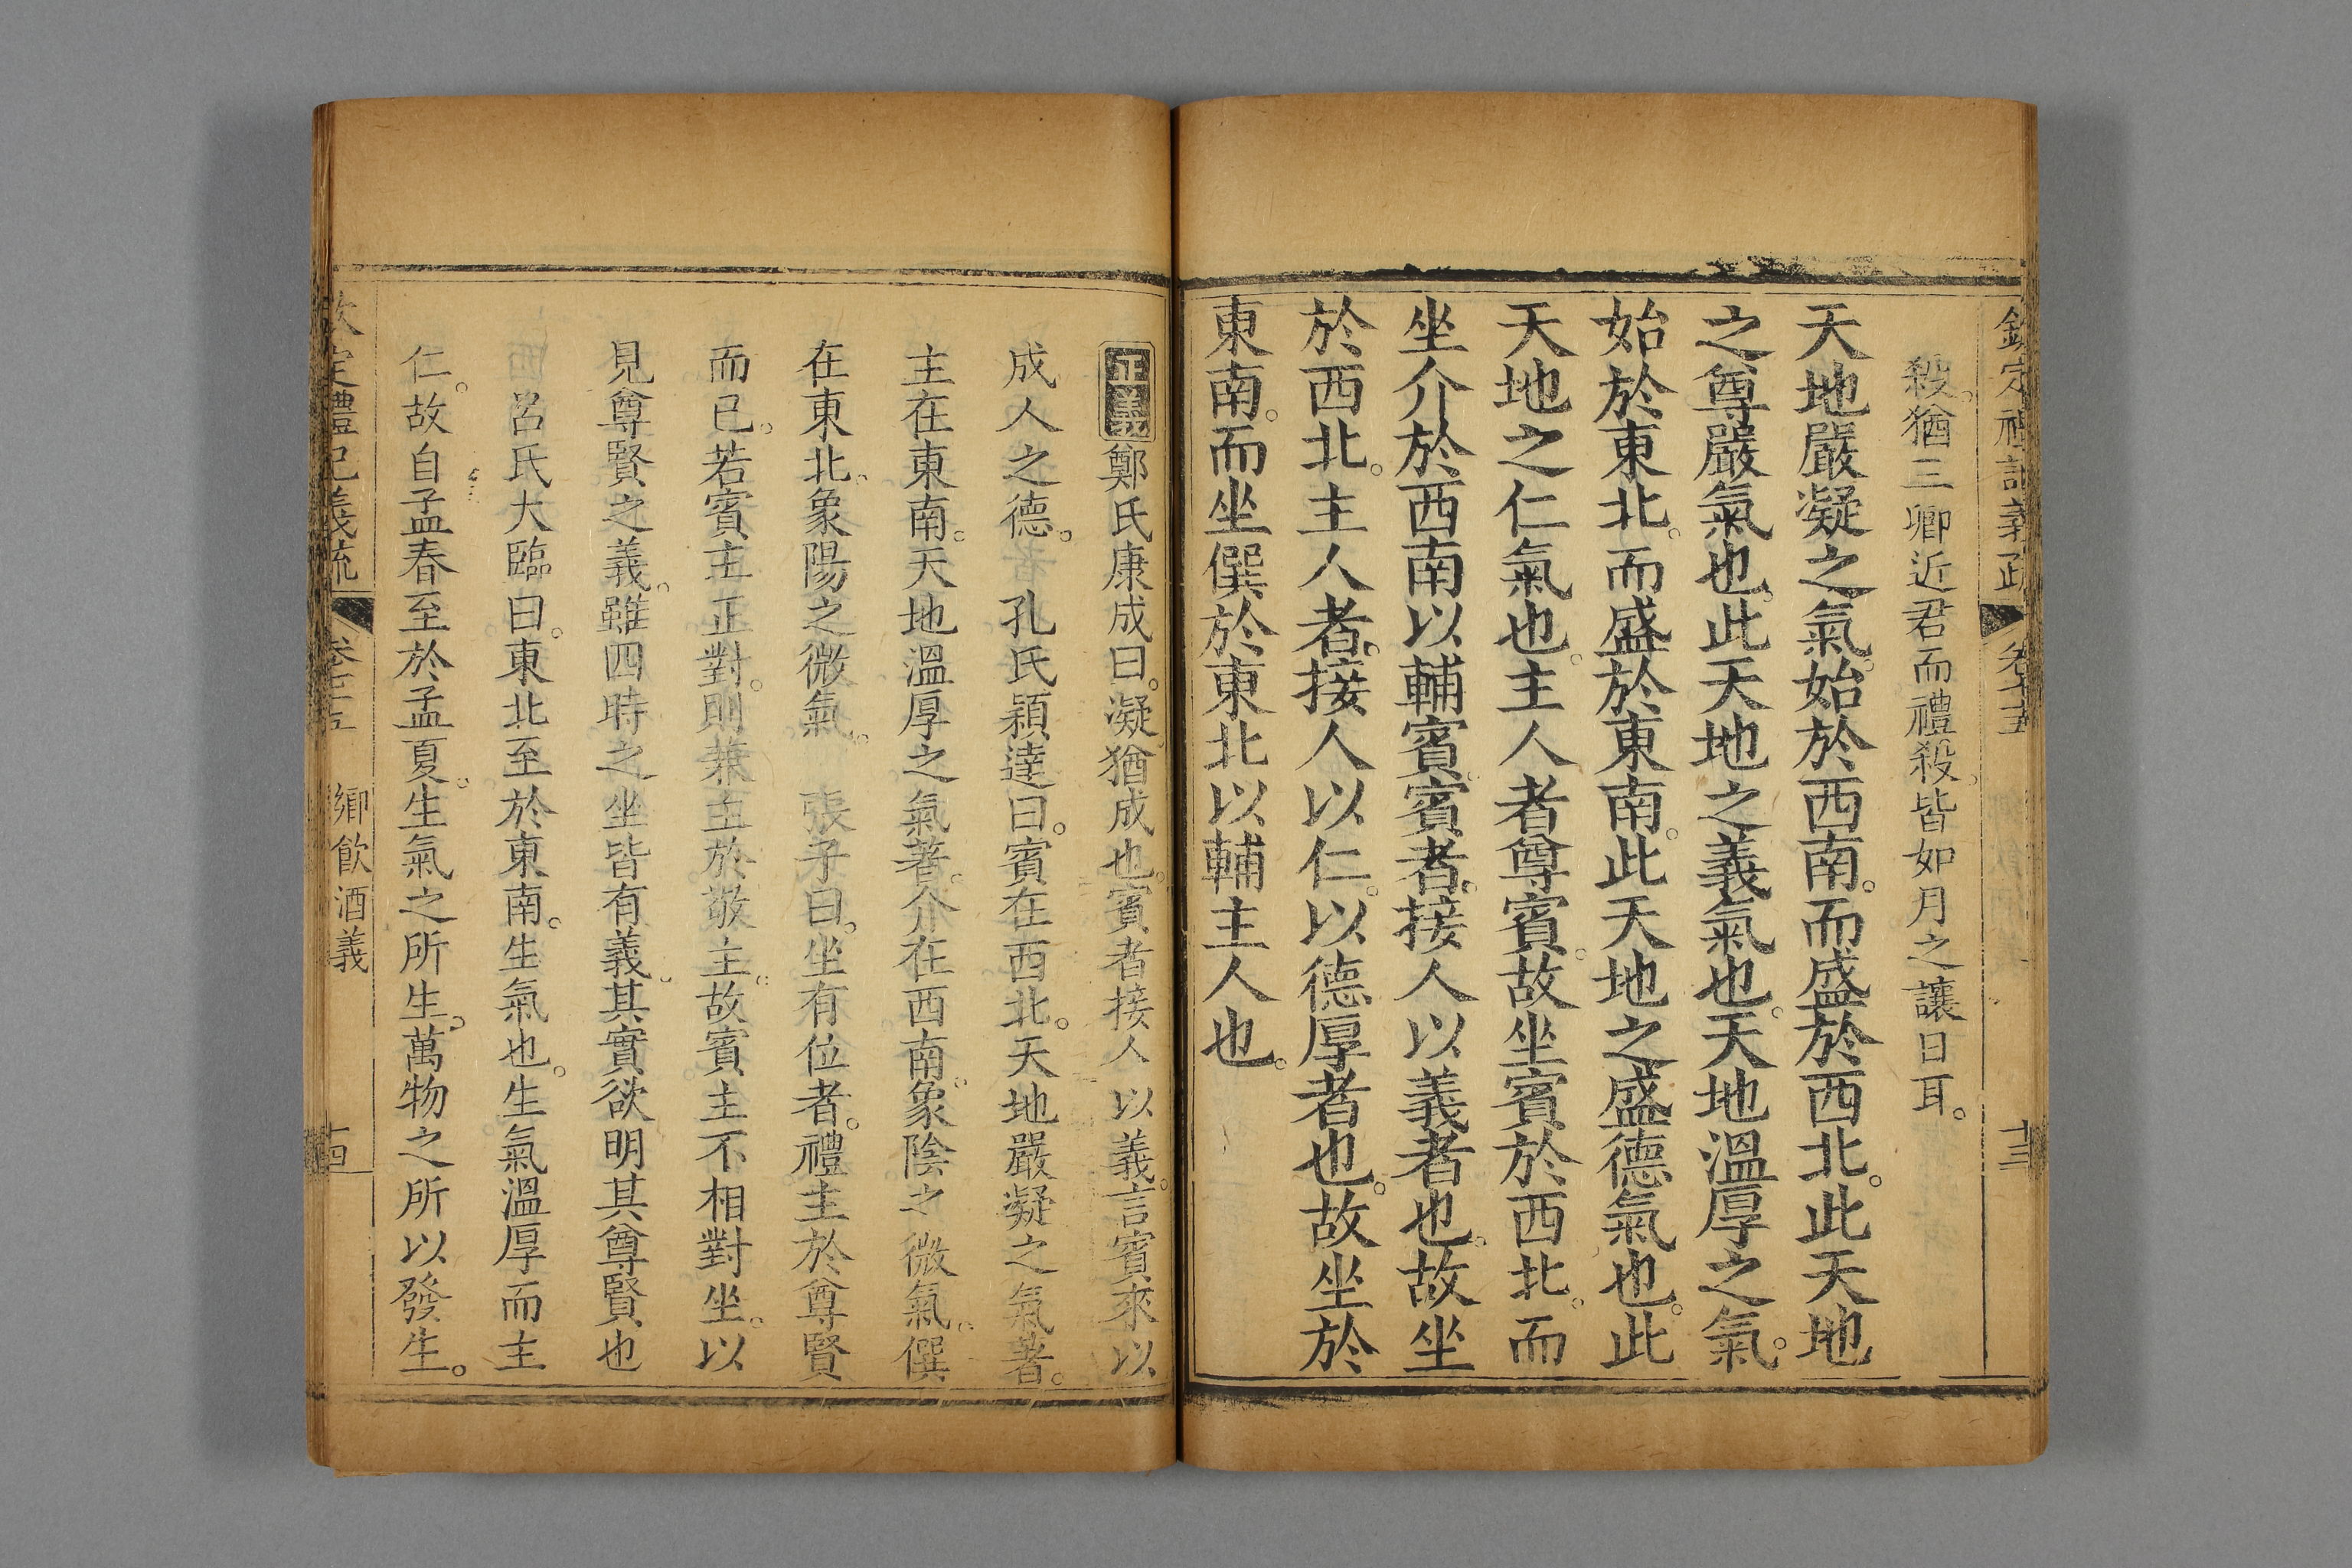 欽定禮記義疏 卷七十五 十三
殺。猶三卿近君而禮殺。皆如月之讓日耳。
天地嚴凝之氣。始於西南。而盛於西北。此天地
之尊嚴氣也。此天地之義氣也。天地溫厚之氣。
始於東北。而盛於東南。此天地之盛德氣也。此
天地之仁氣也。主人者尊賓。故坐賓於西北。而
坐介於西南以輔賓。賓者。接人以義者也。故坐
於西北。主人者。接人以仁。以德厚者也。故坐於
東南。而坐僎於東北以輔主人也。
正義鄭氏康成曰。凝猶成也。賓者接人以義。言賓來以
成人之德。 孔氏穎達曰。賓在西北。天地嚴凝之氣著。
主在東南。天地溫厚之氣著。介在西南。象陰之微氣。僎
在東北。象陽之微氣。 張子曰。坐有位者。禮主於尊賢
而已。若賓主正對。則兼主於敬主。故賓主不相對坐。以
見尊賢之義。雖四時之坐皆有義。其實欲明其尊賢也
呂氏大臨曰。東北至於東南。生氣也。生氣溫厚而主
仁。故自孟春至於孟夏。生氣之所生。萬物之所以發生。
欽定禮記義疏 卷七十五 鄉飲酒義 十四